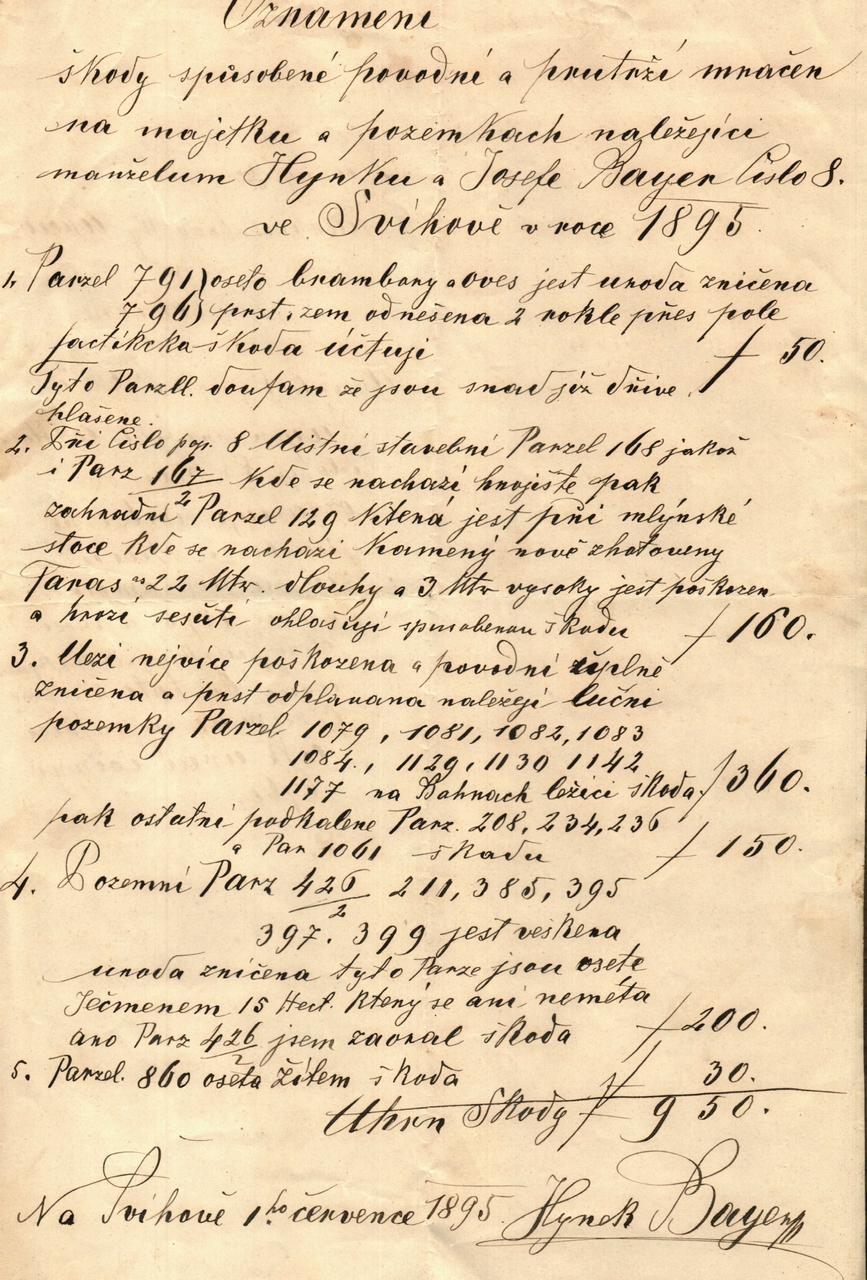 Oznameni
škody spůsobené povodní a prutrží mračen
na majetku a pozemkach naležejíci
manželum Hynku a Josefe Bayer Čislo 8.
ve Švíhově v roce 1895.
1. Parzel 791) oseto brambory a oves jest uroda zničena
796) prst. zem odnešena 2 rokle přes pole
factikcka škoda účtuji f 50.
Tyto Parzll. doufam že jsou snad již dřive
hlašene.
2. Při Čislo pop. 8 Mistní stavební Parzel 168 jakož
i Parz 167/2 kde se nachazí hnojište pak
zahradni Parzel 129 Která jest při mlýnské
stoce kde se nachazi Kamený nově zhotoveny
Taras 22 Mtr. dlouhy a 3 Mtr vysoky jest poškozen
a hrozí sesutí ohlašuji spusobenou škodu f 160.
3. Mezi nejvíce poškozena a povodní úplně
zničena a prst odplavana naležejí lučni
pozemky Parzel 1079, 1081, 1082, 1083
1084., 1129, 1130 1142
1177 na Bahnach ležici škoda f 360.
pak ostatni podkalene Parz. 208, 234, 236
a Par 1061 škodu f 150.
4. Pozemní Parz 426/2 211, 385, 395
397. 399 jest veškera
uroda zničena tyto Parze jsou osete
Ječmenem 15 Hect. Který se ani nemeta
ano Parz 426/2 jsem zaoral škoda f 200.
5. Parzel. 860 oseta žitem škoda f 30.
Uhrn Škody f 950.
Na Švihově 1ho července 1895 Hynek Bayer